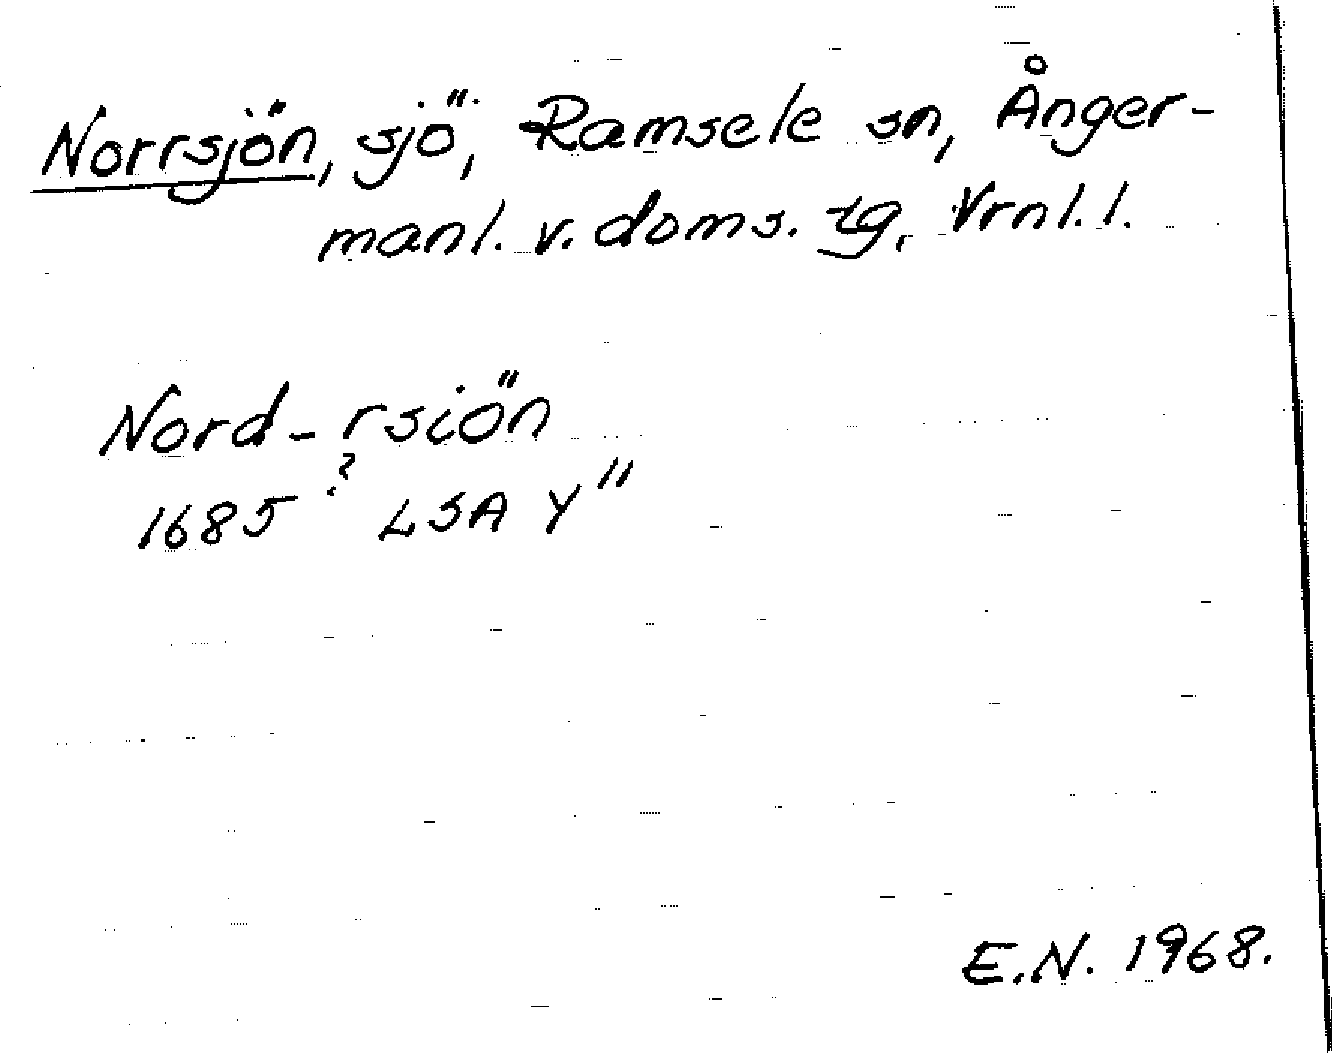 Norrsjön, sjö, Ramsele sn, Ånger-
manl. v. doms. tg, Vrnl. l.
Nord-rsiön
?
1685 LSA Y"
E.N. 1968.